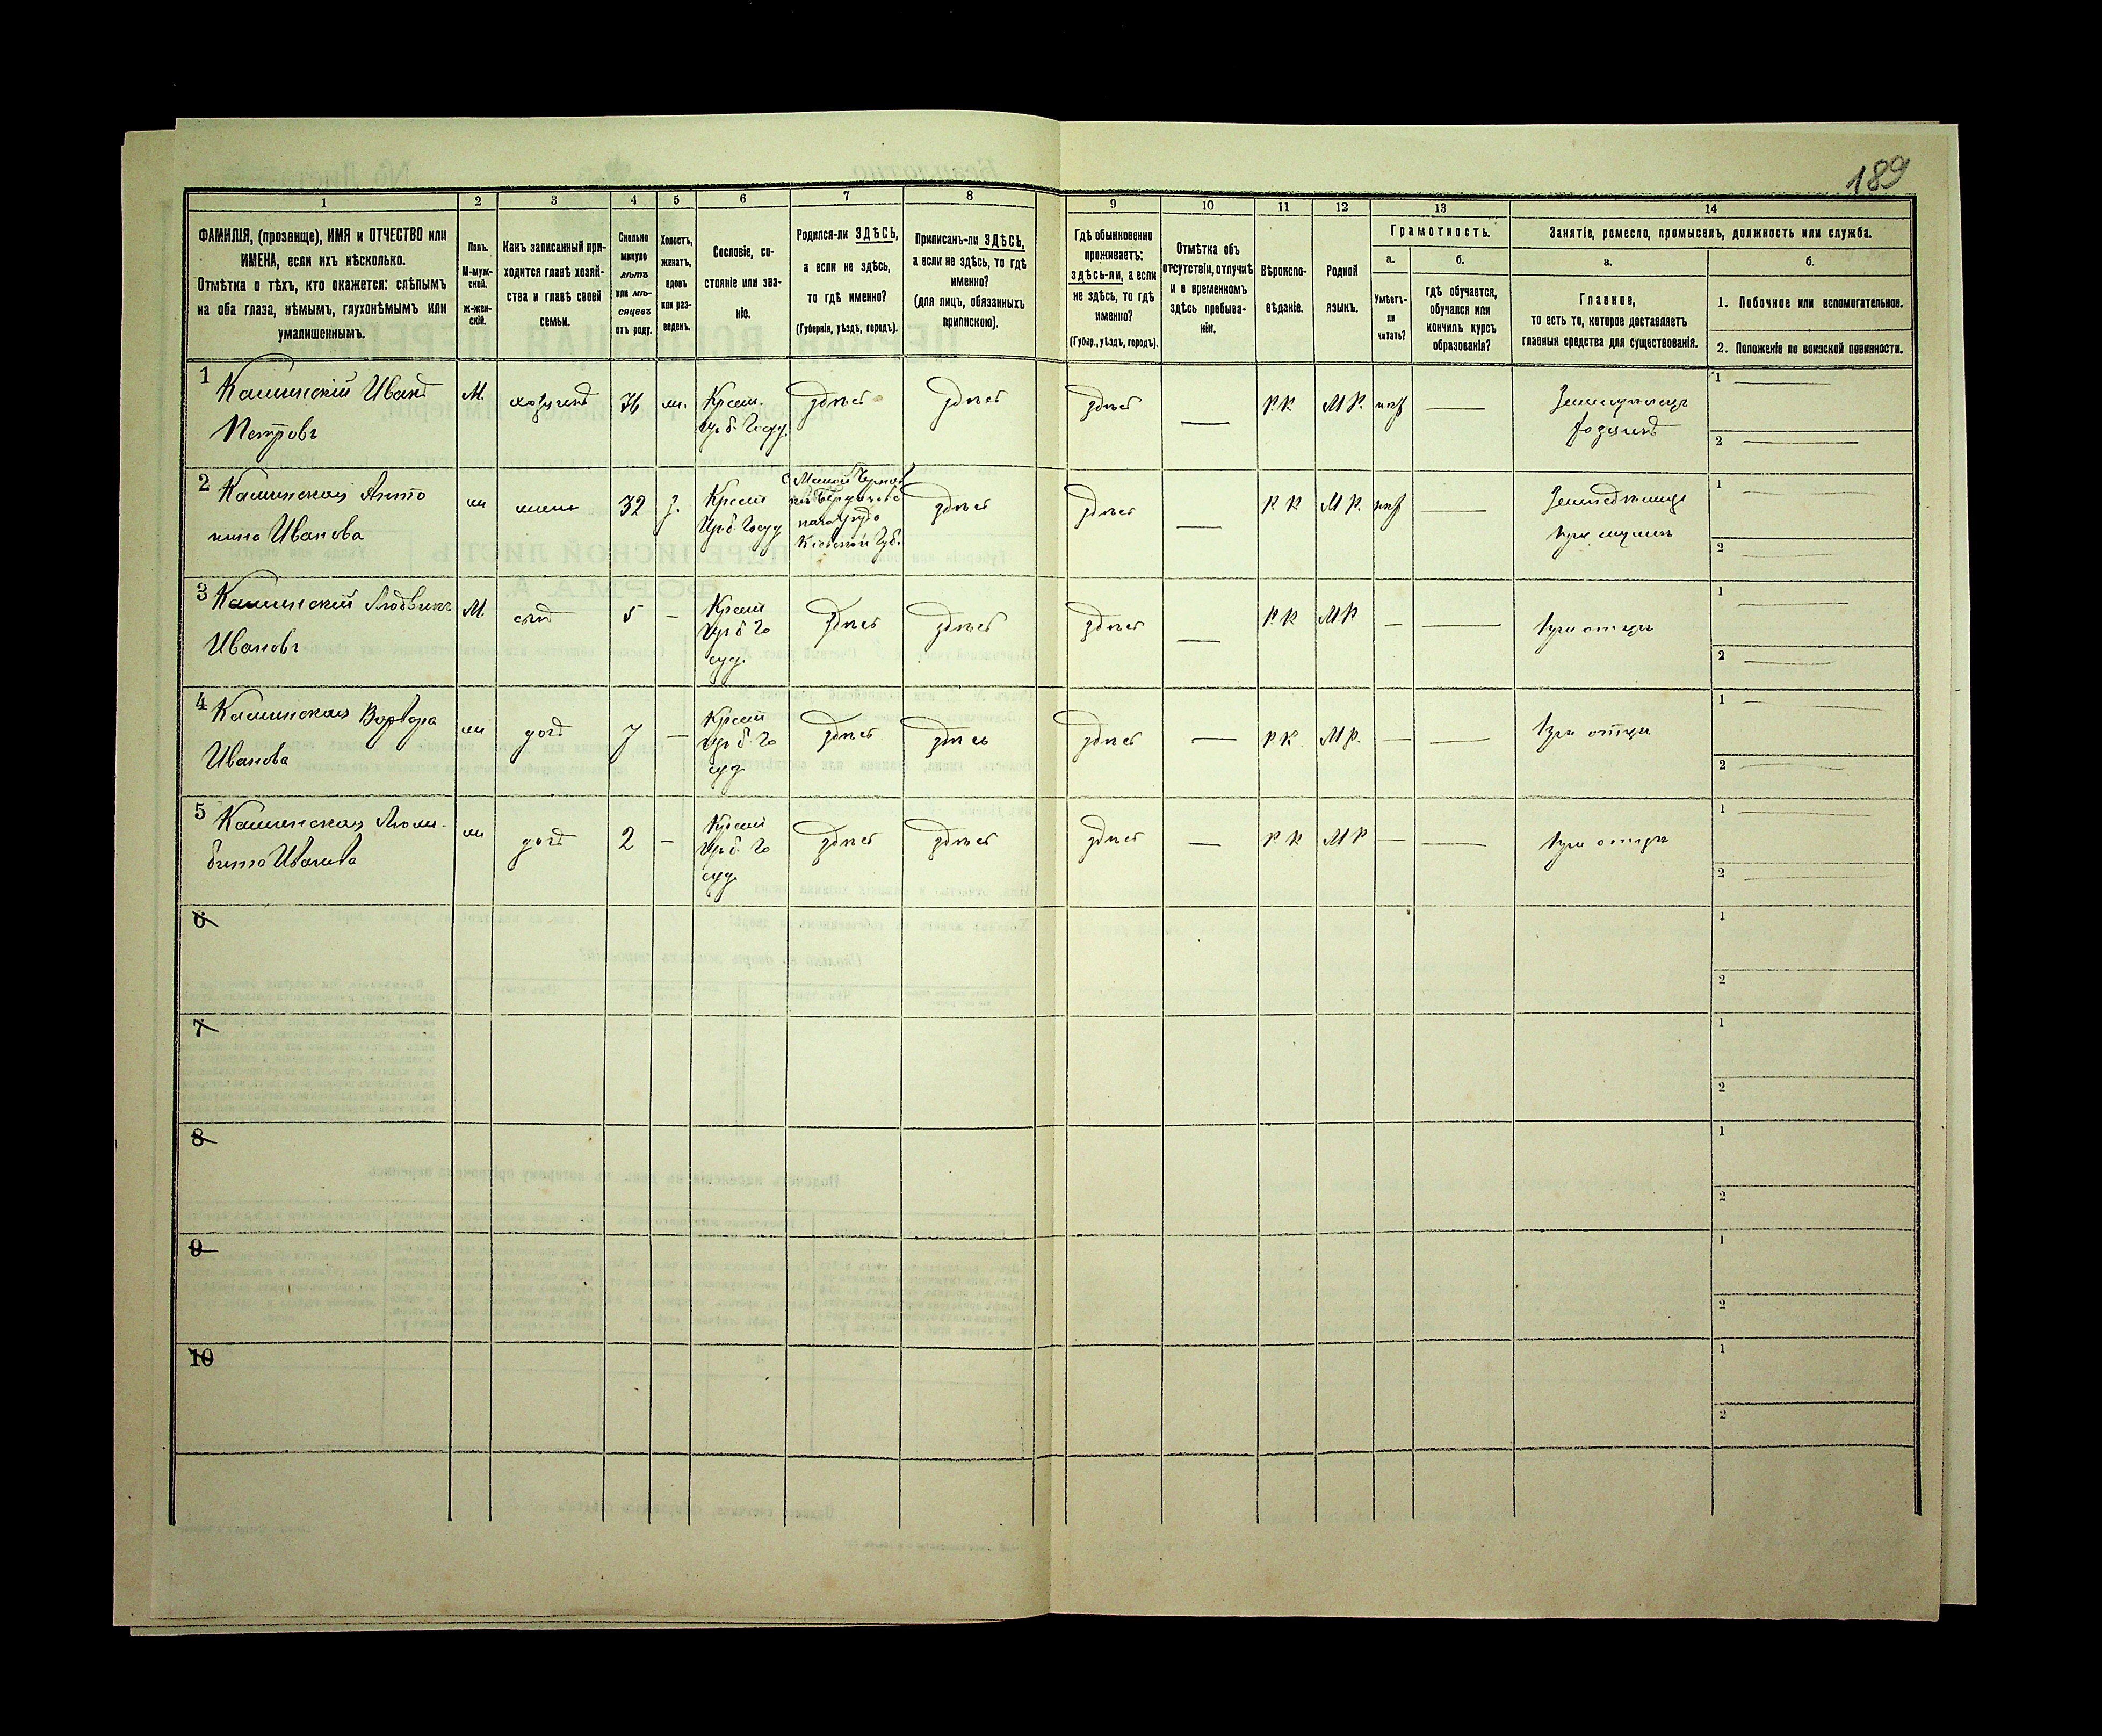 189
1
2
3
4
5
6
7
8
9
10
11
12
13
14
ФАМИЛІЯ, (прозвище), ИМЯ и ОТЧЕСТВО или
ИМЕНА, если ихъ нѣсколько.
Отмѣтка о тѣхъ, кто окажется: слѣпымъ
на оба глаза, нѣмымъ, глухонѣмымъ или
умалишеннымъ.
Полъ.
М-муж-
ской.
ж-жен-
скій.
Какъ записанный при-
ходится главѣ хозяй-
ства и главѣ своей
семьи.
Сколько
минуло
лѣтъ
или мѣ-
сяцевъ
отъ роду.
Холостъ,
женатъ,
вдовъ
или раз-
веденъ.
Сословіе, со-
стояніе или зва-
ніе.
Родился-ли ЗДѢСЬ,
а если не здѣсь,
то гдѣ именно?
(Губернія, уѣздъ, городъ).
Приписанъ-ли ЗДѢСЬ,
а если не здѣсь, то гдѣ
именно?
(для лицъ, обязанныхъ
припискою).
Гдѣ обыкновенно
проживаетъ:
здѣсь-ли, а если
не здѣсь, то гдѣ
именно?
(Губер., уѣздъ, городъ).
Отмѣтка объ
отсутствіи, отлучкѣ
и о временномъ
здѣсь пребыва-
ніи.
Вѣроиспо-
вѣданіе.
Родной
языкъ.
Грамотность.
а.
Умѣетъ-
ли
читать?
б.
гдѣ обучается,
обучался или
кончилъ курсъ
образованія?
Занятіе, ремесло, промыселъ, должность или служба.
а.
Главное,
то есть то, которое доставляетъ
главныя средства для существованія.
б.
1. Побочное или вспомогательное.
2. Положеніе по воинской повинности.
1
Каминскій Иванъ
Петровъ
М.
хозяинъ
36
ж.
Крест.
Госуд.
здѣсь
здѣсь
здѣсь
—
Р. К
М Р.
нѣт
—
Земледѣлецъ
хозяинъ
1 —
2 —
2
Каминская Анто
нина Иванова
ж
жена
32
з.
Крест
Госуд
Кіевской Губ.
здѣсь
здѣсь
—
Р. К
М Р.
нѣт
—
при мужѣ
1 —
2 —
3
Каминскій Людвикъ
Ивановъ
М.
сынъ
5
—
Крест
Го
суд.
здѣсь
здѣсь
здѣсь
—
Р. К
М Р
—
—
При отцѣ
1 —
2 —
4
Каминская Варвара
Иванова
ж
дочь
7
—
Крест
Го
суд
здѣсь
здѣсь
здѣсь
—
Р К.
М Р.
—
—
При отцѣ
1 —
2 —
5
Каминская
Иванова
ж
дочь
2
—
Крест
Го
суд
здѣсь
здѣсь
здѣсь
—
Р. К
М Р
—
—
При отцѣ
1 —
2 —
6
1
2
7
1
2
8
1
2
9
1
2
10
1
2